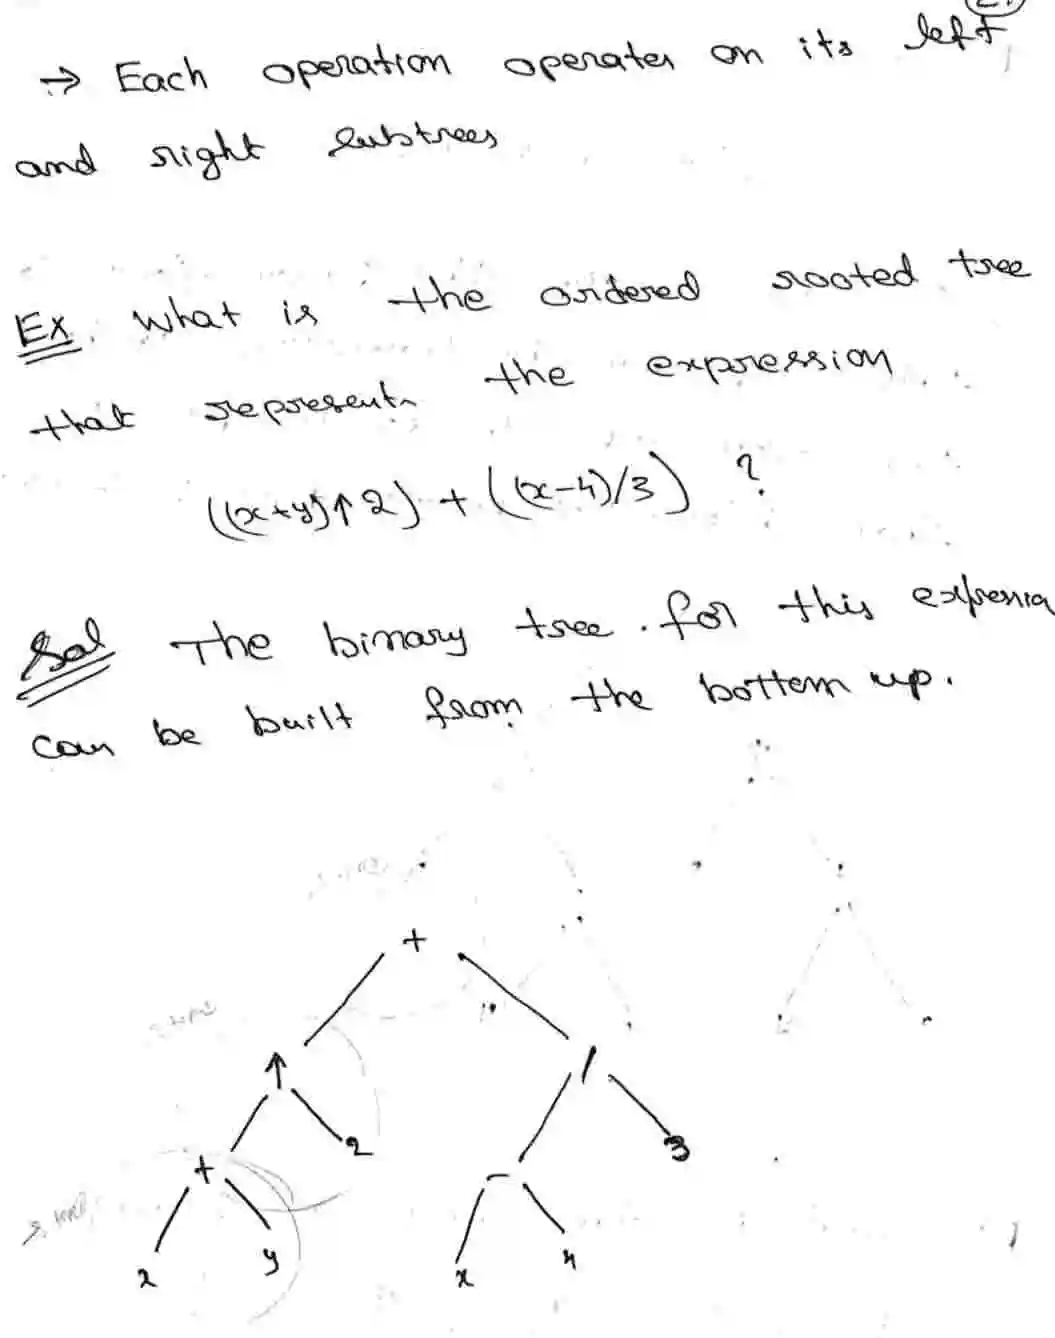 → Each operation operates on its left
and right subtrees
Ex. What is the ordered rooted tree
that represents the expression
((x+y)↑2) + ((x-4)/3) ?
Sol The binary tree for this
can be built from the bottom up.
+
↑ /
+ 2 - 3
x y x 4